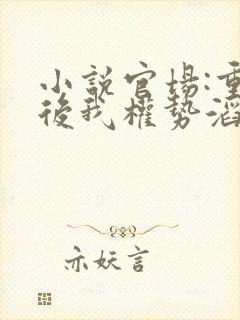 小說官場:重
後我權勢滔
亦妖言